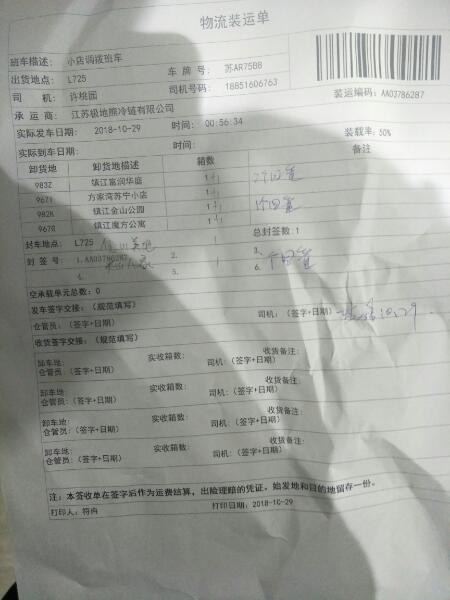 物流装运单
班车描述: 小店调拨班车
出货地点: L725 车牌号: 苏AR75B8
司机: 许桃园 司机号码: 18851606763
承运商: 江苏极地熊冷链有限公司 装运编码: AA03786287
实际发车日期: 2018-10-29 时间: 00:56:34 装载率: 50%
实际到车日期: 时间:
卸货地 卸货地描述 箱数 备注
983Z 镇江富润华庭 1
9671 方家湾苏宁小店 1
982K 镇江金山公园 1
967R 镇江魔方公寓 1
封车地点: L725 总封签数: 1
封签号: 1.AA03786287 2. 3.
4. 5. 6.
空承载单元总数: 0
发车签字交接: (规范填写)
仓管员: (签字+日期) 司机: (签字+日期)
收货签字交接: (规范填写)
卸车地: 实收箱数: 收货备注:
仓管员: (签字+日期) 司机: (签字+日期)
卸车地 实收箱数: 收货备注:
仓管员: (签字+日期) 司机: (签字+日期)
卸车地 实收箱数: 收货备注:
仓管员: (签字+日期) 司机: (签字+日期)
卸车地 实收箱数: 收货备注:
仓管员: (签字+日期) 司机: (签字+日期)
注: 本签收单在签字后作为运费结算, 出险理赔的凭证, 始发地和目的地留存一份。
打印人: 符冉 打印日期: 2018-10-29